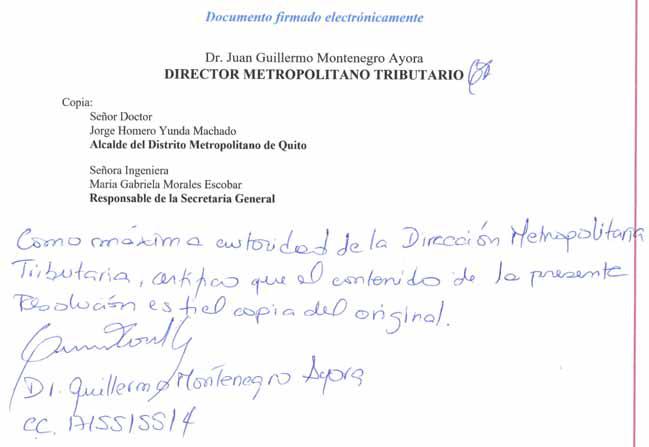 Documento firmado electrónicamente
Dr. Juan Guillermo Montenegro Ayora
DIRECTOR METROPOLITANO TRIBUTARIO
Copia:
Señor Doctor
Jorge Homero Yunda Machado
Alcalde del Distrito Metropolitano de Quito
Señora Ingeniera
Maria Gabriela Morales Escobar
Responsable de la Secretaria General
Como máxima autoridad de la Dirección Metropolitana
Tributaria, certifico que el contenido de la presente
Resolución es fiel copia del original.
Dr. Guillermo Montenegro Ayora
CC.